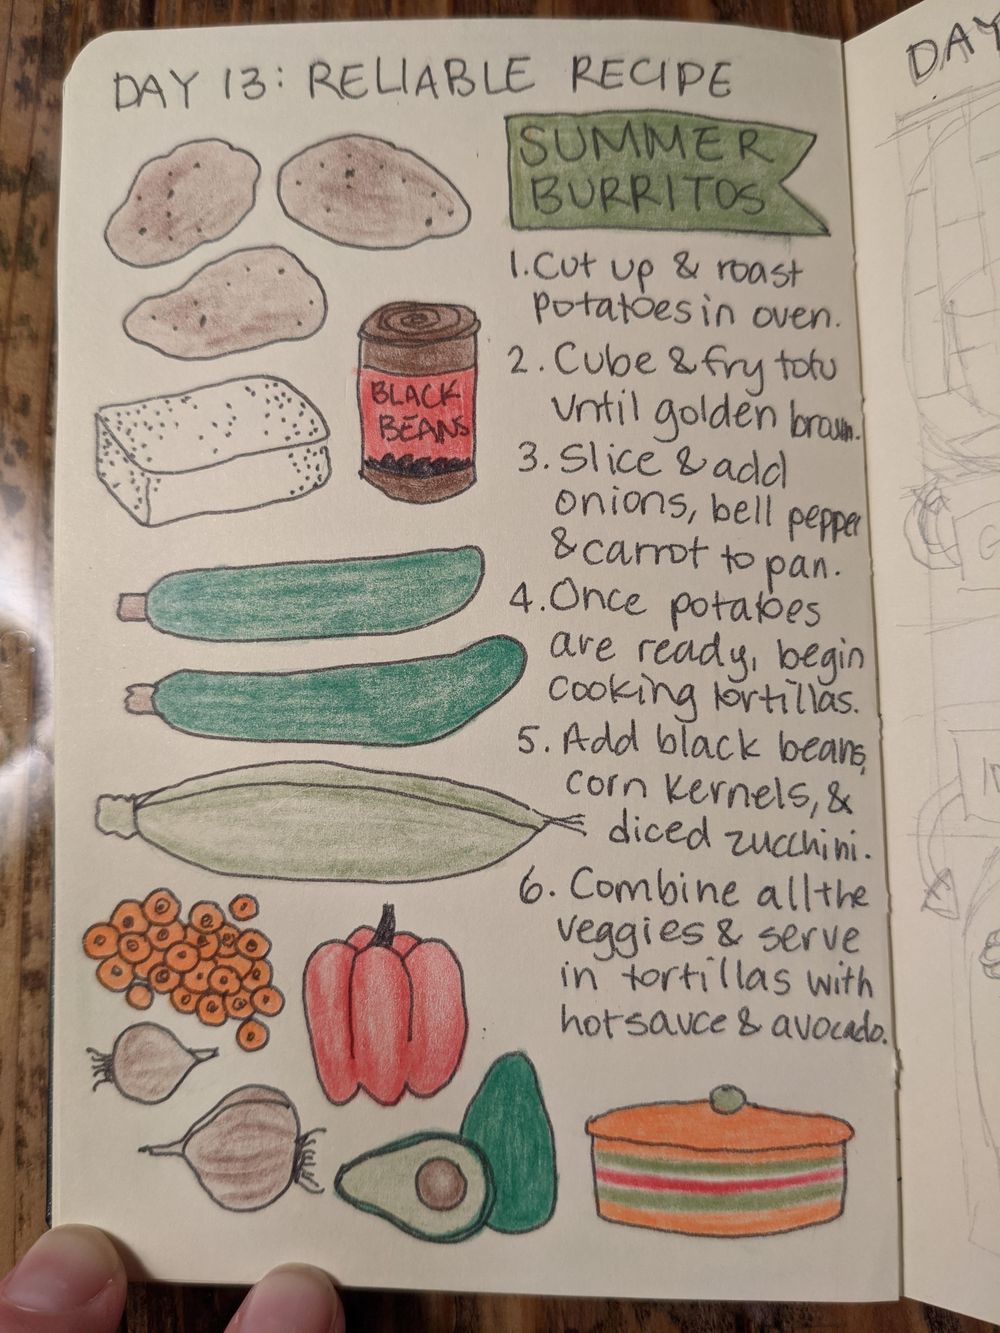 DAY 13: RELIABLE RECIPE
SUMMER
BURRITOS
1. Cut up & roast
potatoes in oven.
2. Cube & fry tofu
until golden brown.
3. Slice & add
onions, bell pepper
& carrot to pan.
4. Once potatoes
are ready, begin
cooking tortillas.
5. Add black beans,
corn kernels, &
diced zucchini.
6. Combine all the
veggies & serve
in tortillas with
hot sauce & avocado.
BLACK
BEANS
DAY